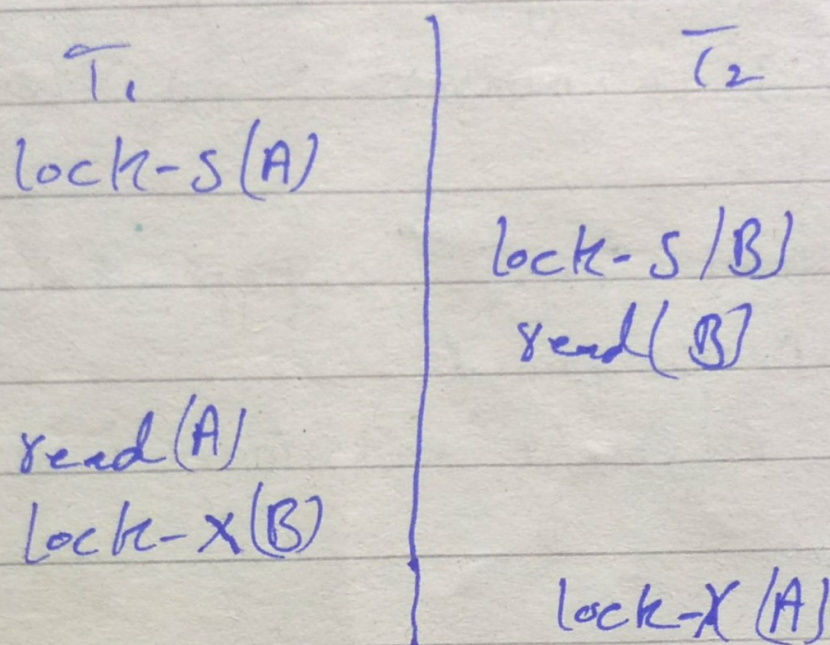 T1 T2
lock-S(A)
lock-S(B)
read(B)
read(A)
lock-X(B)
lock-X(A)